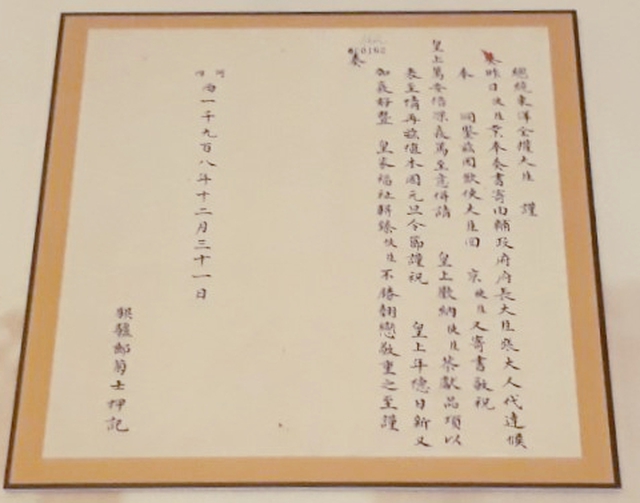 總統東洋全權大臣 謹
奏昨日使臣業奉奏書寄由輔政府府長大臣大人代達候
奉 同鑒茲因欽使大臣回 京使臣又寄書敬祝
皇上萬安倍深義篤至意併請 皇上納使臣恭獻品項以
表至情再茲值本國元旦令節謹祝 皇上年德日新又
加義好豐 皇家福祉駢臻使臣不勝翹戀敬重之至謹
奏
西一千九百八年十二月三十一日
菊士押記